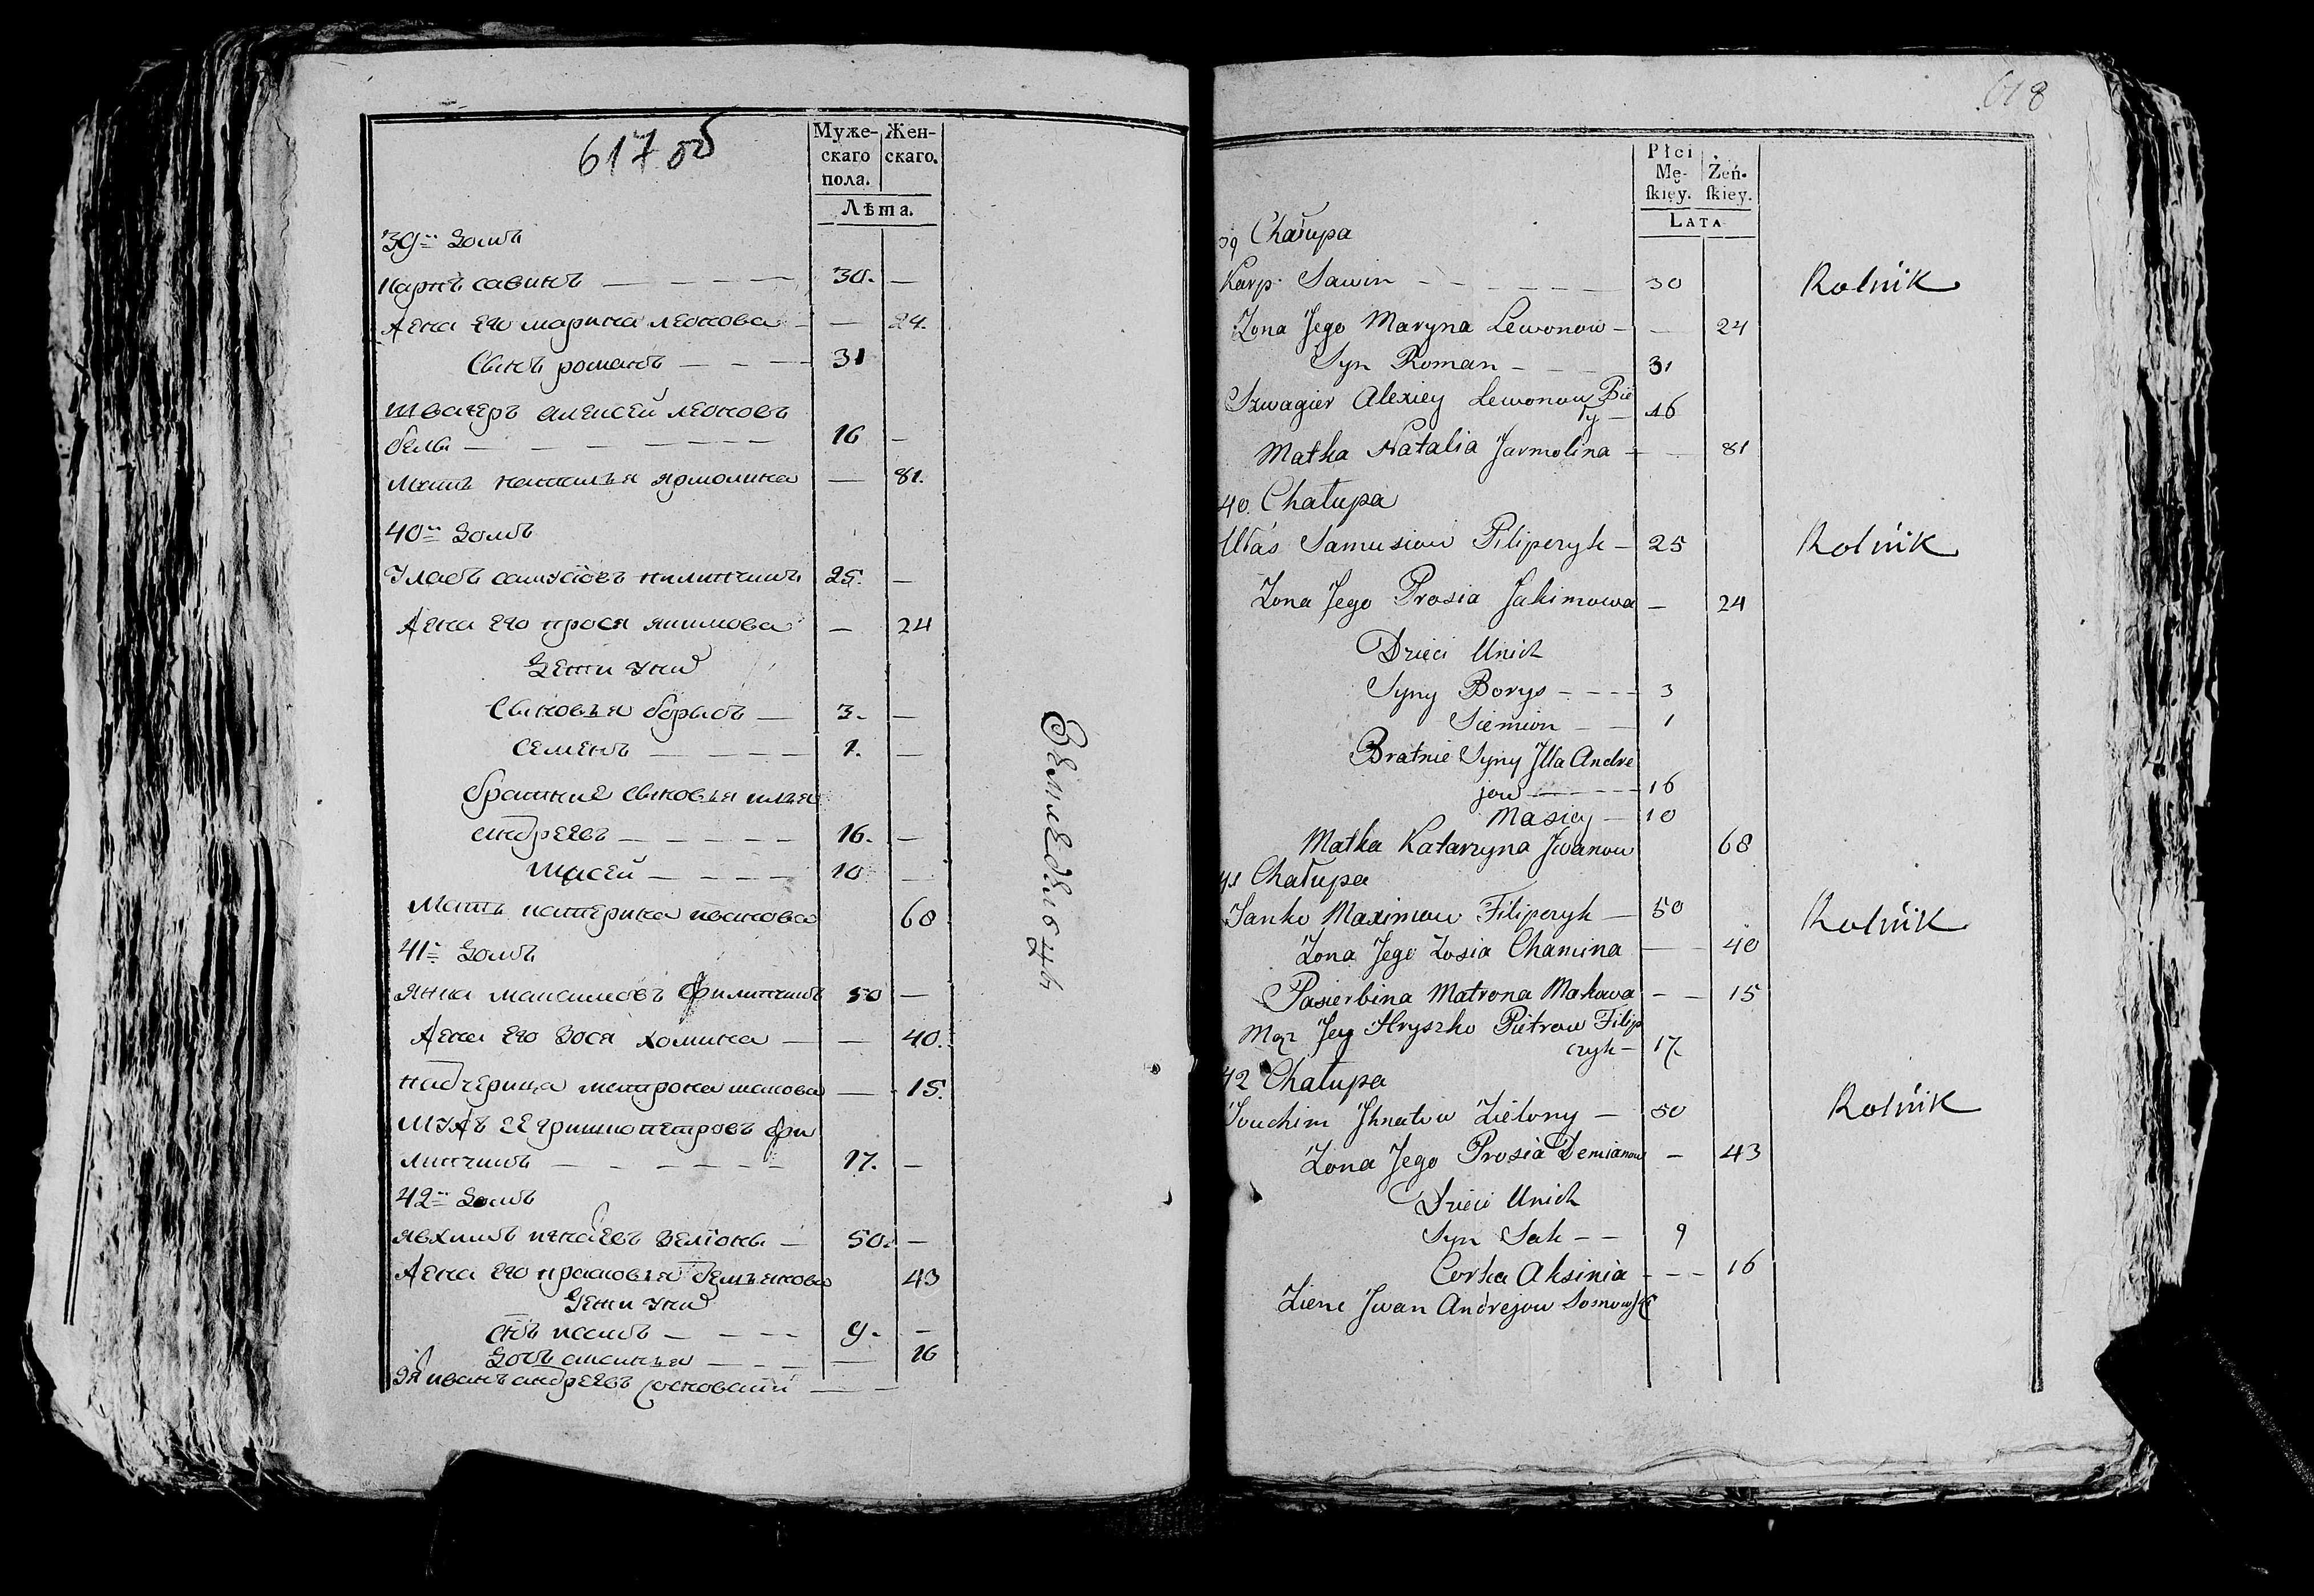 617 об
Муже-
скаго
пола.
Жен-
скаго.
Лѣта.
39й домъ
Карпъ савинъ 30. —
жена его марина леонова — 24.
Сынъ романъ 31
швагеръ алексей леоновъ
белы 16 —
мать наталья ярмолина — 81.
40й домъ
Уласъ самусiовъ пилипчикъ 25. —
жена его прося якимова — 24
Дети унид
Сыновья борысъ 3. —
семенъ 1. —
братние сыновья илья
андреевъ 16. —
масей 10 —
Мать катерина иванова 68
41й домъ
Янка максимовъ филипчикъ 50 —
жена его зося хомина — 40.
падчерица матрона макова — 15.
мужъ ее гришко петровъ фи
липчикъ 17. —
42й домъ
явхимъ игнаевъ зелiоны 50. —
жена его прасковья демьянова 43
Дети унид
9. —
дочь аксинья — 16
зя иванъ андреевъ сосновский
Земледельцы
618
Płci
Mę-
ſkiey.
Żeń-
ſkiey.
LATA
39 Chałupa
Karp Sawin 30 Rolnik
Zona Jego Maryna Lewonow — 24
Syn Roman 31
Szwagier Alexiey Lewonow Bie
ły 16
Matka Natalia Jarmolina — 81
40. Chałupa
Ułas Samusiow Pilipczyk 25 Rolnik
Zona Jego Prosia Jakimowa — 24
Dzieci Unich
Syny Borys 3
Siemion 1
Bratnie Syny Jlla Andre
jow 16
Masiey 10
Matka Katarzyna Jwanow 68
41 Chałupa
Janko Maximow Filipczyk 50 Rolnik
Zona Jego Zosia Chamina — 40
Pasierbina Matrona Makowa — 15
Mąz Jey Hryszko Pietrow Filip
czyk 17.
42 Chałupa
Jouchim Jhnatow Zielony 50 Rolnik
Zona Jego Prosia Demianow — 43
Dzieci Unich
Syn Sak 9
Corka Aksinia 16
Zienc Jwan Andrejow Sosnowski